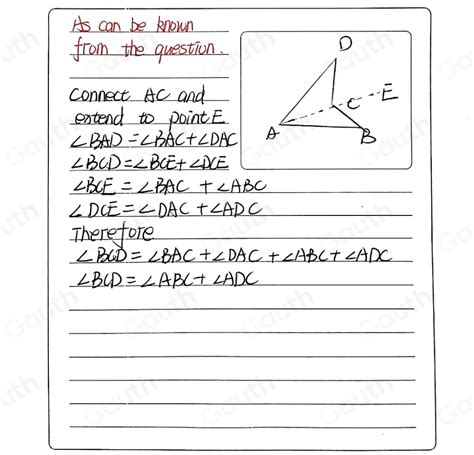 As can be known
from the question.
Connect AC and
extend to point E
∠BAD=∠BAC+∠DAC
∠BCD=∠BCE+∠DCE
∠BCE=∠BAC+∠ABC
∠DCE=∠DAC+∠ADC
Therefore
∠BCD=∠BAC+∠DAC+∠ABC+∠ADC
∠BCD=∠ABC+∠ADC
D
E
C
A
B
Gauth